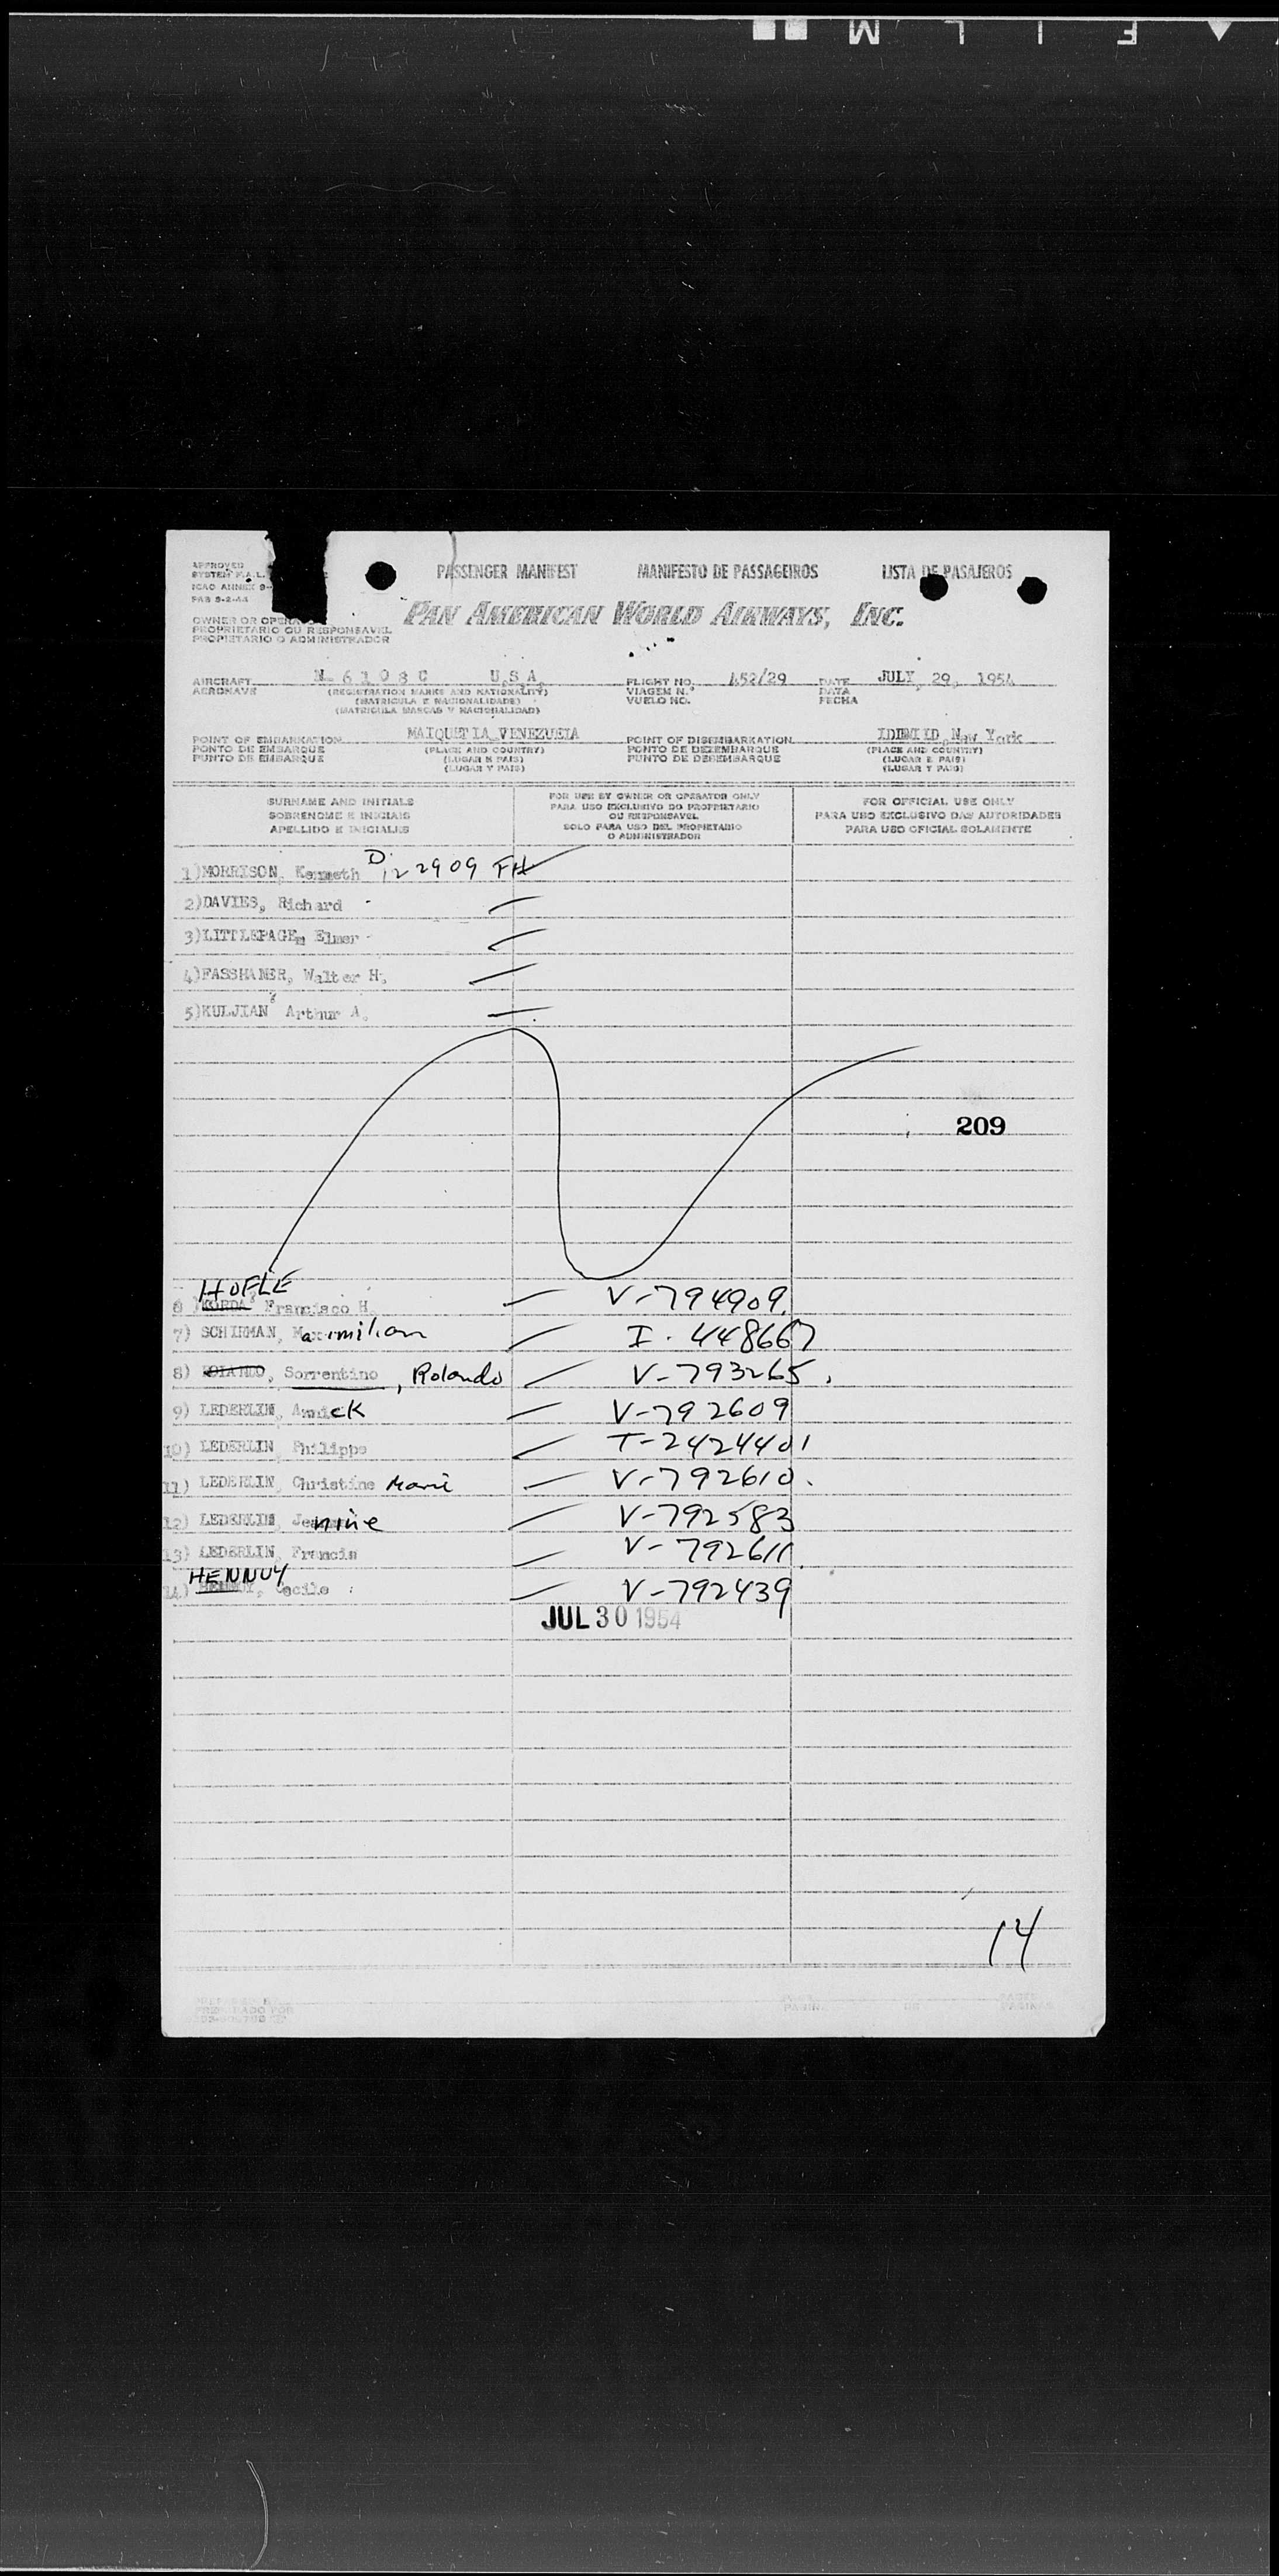 F I L M
APPROVED
SYSTEM F.A.L.
ICAO ANNEX 9-
PAA 9-2-44
PASSENGER MANIFEST MANIFESTO DE PASSAGEIROS LISTA DE PASAJEROS
PAN AMERICAN WORLD AIRWAYS, INC.
OWNER OR OPERA
PROPRIETARIO OU RESPONSAVEL
PROPIETARIO O ADMINISTRADOR
AIRCRAFT N 6108C U.S.A. FLIGHT NO. 452/29 DATE JULY, 29, 1954
AERONAVE (REGISTRATION MARKS AND NATIONALITY) VIAGEM N.º DATA
(MATRICULA E NACIONALIDADE) VUELO NO. FECHA
(MATRICULA MARCAS Y NACIONALIDAD)
POINT OF EMBARKATION MAIQUETIA VENEZUEIA POINT OF DISEMBARKATION IDEMIID, New York
PONTO DE EMBARQUE (PLACE AND COUNTRY) PONTO DE DEZEMBARQUE (PLACE AND COUNTRY)
PUNTO DE EMBARQUE (LUGAR E PAIS) PUNTO DE DESEMBARQUE (LUGAR E PAIS)
(LUGAR Y PAIS) (LUGAR Y PAIS)
SURNAME AND INITIALS
SOBRENOME E INICIAIS
APELLIDO E INICIALES
FOR USE BY OWNER OR OPERATOR ONLY
PARA USO EXCLUSIVO DO PROPRIETARIO
OU RESPONSAVEL
SOLO PARA USO DEL PROPIETARIO
O ADMINISTRADOR
FOR OFFICIAL USE ONLY
PARA USO EXCLUSIVO DAS AUTORIDADES
PARA USO OFICIAL SOLAMENTE
1) MORRISON, Kenneth D. 122909 FH
2) DAVIES, Richard
3) LITTLEPAGE, Elmer
4) FASSHANER, Walter H.
5) KULJIAN, Arthur A.
209
HOFLE
6) KORDA, Francisco H. V-794909.
7) SCHIRMAN, Maximilian I-448667
8) Sorrentino, Rolando V-793265.
9) LEDERLIN, Annick V-792609
10) LEDERLIN, Philippe T-2424401
11) LEDERLIN, Christine Marie V-792610.
12) LEDERLIN, Jeannine V-792583
13) LEDERLIN, Francis V-792611
HENNUY
14) Cecile V-792439
JUL 30 1954
14